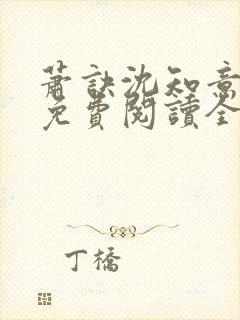 蕭訣沈知意
免費閱讀全
丁橋